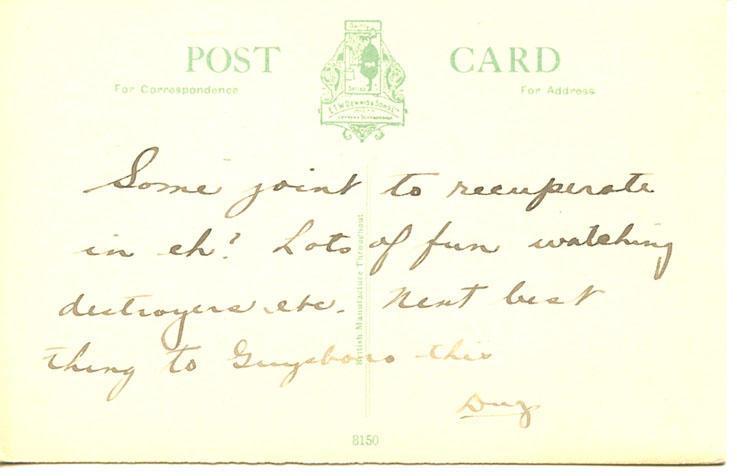 POST CARD
For Correspondence
For Address
E.T.W. DENNIS & SONS
Some joint to recuperate
in eh? Lots of fun watching
destroyers etc. Next best
thing to Guysboro this
Dug
British Manufacture Throughout
8150